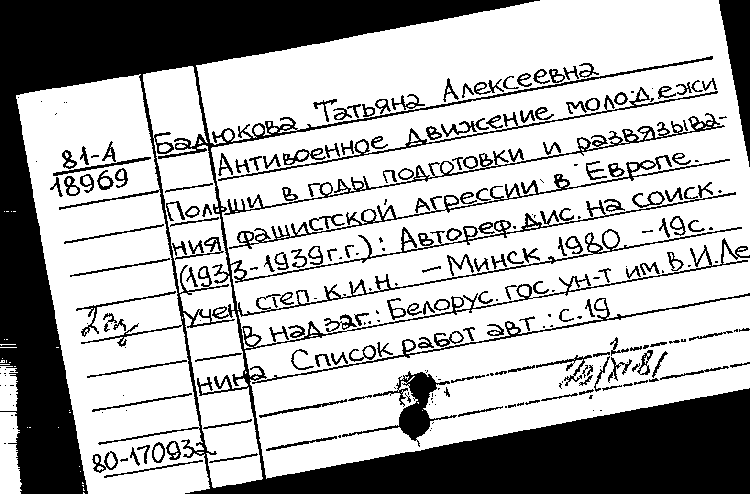 Бадюкова, Татьяна Алексеевна
81-А
18969
Антивоенное движение молодежи
Польши в годы подготовки и развязыва-
ния фашистской агрессии в Европе.
(1933-1939г.г.): Автореф. дис. на соиск.
учен. степ. к.и.н. – Минск, 1980. - 19с.
2 экз
В надзаг.: Белорус. гос. ун-т им. В.И.Ле
нина. Список работ авт.: с.19.
80-170932